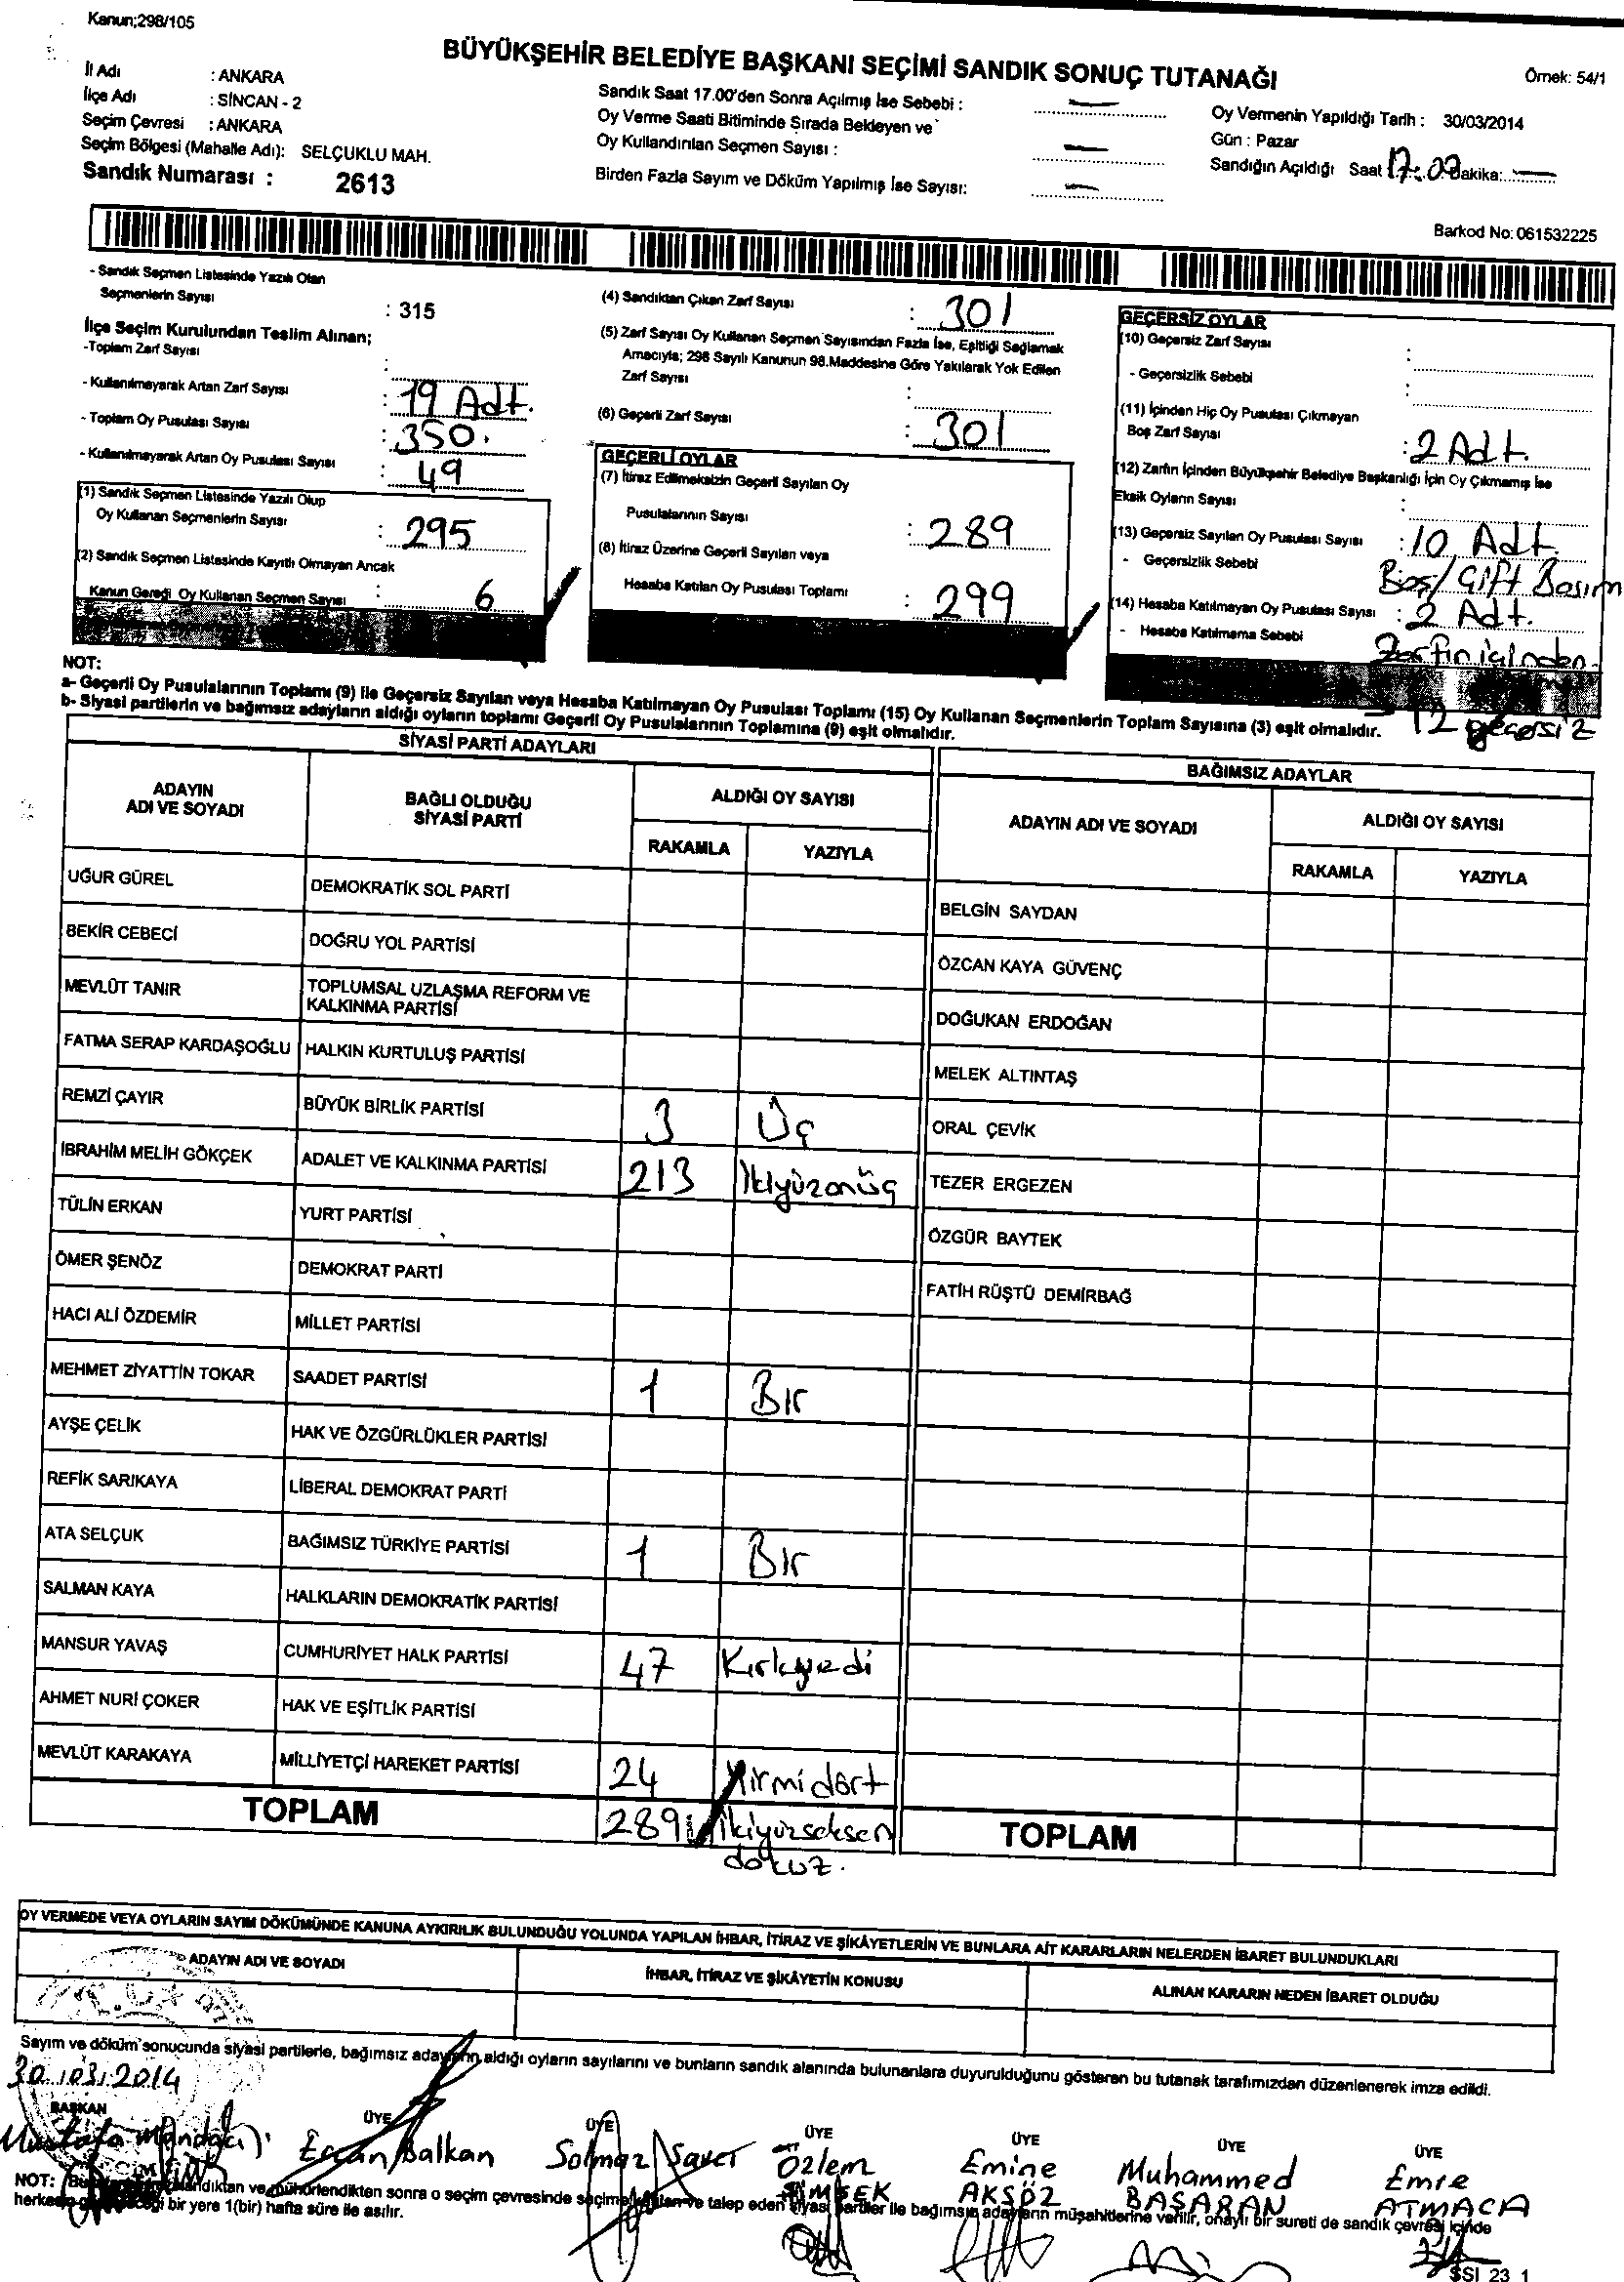 Kanun;298/105
BÜYÜKŞEHİR BELEDİYE BAŞKANI SEÇİMİ SANDIK SONUÇ TUTANAĞI
Örnek: 54/1
İl Adı : ANKARA
İlçe Adı : SİNCAN - 2
Seçim Çevresi : ANKARA
Seçim Bölgesi (Mahalle Adı): SELÇUKLU MAH.
Sandık Numarası : 2613
Sandık Saat 17.00'den Sonra Açılmış İse Sebebi : —
Oy Verme Saati Bitiminde Sırada Bekleyen ve
Oy Kullandırılan Seçmen Sayısı : —
Birden Fazla Sayım ve Döküm Yapılmış İse Sayısı: —
Oy Vermenin Yapıldığı Tarih : 30/03/2014
Gün : Pazar
Sandığın Açıldığı Saat 17:07 Dakika: —
Barkod No: 061532225
- Sandık Seçmen Listesinde Yazılı Olan
Seçmenlerin Sayısı : 315
İlçe Seçim Kurulundan Teslim Alınan;
-Toplam Zarf Sayısı :
- Kullanılmayarak Artan Zarf Sayısı : 19 Adt.
- Toplam Oy Pusulası Sayısı : 350.
- Kullanılmayarak Artan Oy Pusulası Sayısı : 49
(1) Sandık Seçmen Listesinde Yazılı Olup
Oy Kullanan Seçmenlerin Sayısı : 295
(2) Sandık Seçmen Listesinde Kayıtlı Olmayan Ancak
Kanun Gereği Oy Kullanan Seçmen Sayısı : 6
(4) Sandıktan Çıkan Zarf Sayısı : 301
(5) Zarf Sayısı Oy Kullanan Seçmen Sayısından Fazla İse, Eşitliği Sağlamak
Amacıyla; 298 Sayılı Kanunun 98.Maddesine Göre Yakılarak Yok Edilen
Zarf Sayısı :
(6) Geçerli Zarf Sayısı : 301
GEÇERLİ OYLAR
(7) İtiraz Edilmeksizin Geçerli Sayılan Oy
Pusulalarının Sayısı : 289
(8) İtiraz Üzerine Geçerli Sayılan veya
Hesaba Katılan Oy Pusulası Toplamı : 299
GEÇERSİZ OYLAR
(10) Geçersiz Zarf Sayısı :
- Geçersizlik Sebebi :
(11) İçinden Hiç Oy Pusulası Çıkmayan
Boş Zarf Sayısı : 2 Adt.
(12) Zarfın İçinden Büyükşehir Belediye Başkanlığı İçin Oy Çıkmamış İse
Eksik Oyların Sayısı :
(13) Geçersiz Sayılan Oy Pusulası Sayısı : 10 Adt.
- Geçersizlik Sebebi Boş/Çift Basım
(14) Hesaba Katılmayan Oy Pusulası Sayısı : 2 Adt.
- Hesaba Katılmama Sebebi Zarfın içinden
NOT:
a- Geçerli Oy Pusulalarının Toplamı (9) ile Geçersiz Sayılan veya Hesaba Katılmayan Oy Pusulası Toplamı (15) Oy Kullanan Seçmenlerin Toplam Sayısına (3) eşit olmalıdır.
12 geçersiz
b- Siyasi partilerin ve bağımsız adayların aldığı oyların toplamı Geçerli Oy Pusulalarının Toplamına (9) eşit olmalıdır.
SİYASİ PARTİ ADAYLARI
ADAYIN ADI VE SOYADI BAĞLI OLDUĞU SİYASİ PARTİ ALDIĞI OY SAYISI
RAKAMLA YAZIYLA
UĞUR GÜREL DEMOKRATİK SOL PARTİ
BEKİR CEBECİ DOĞRU YOL PARTİSİ
MEVLÜT TANIR TOPLUMSAL UZLAŞMA REFORM VE KALKINMA PARTİSİ
FATMA SERAP KARDAŞOĞLU HALKIN KURTULUŞ PARTİSİ
REMZİ ÇAYIR BÜYÜK BİRLİK PARTİSİ 3 Üç
İBRAHİM MELİH GÖKÇEK ADALET VE KALKINMA PARTİSİ 213 İkiyüzonüç
TÜLİN ERKAN YURT PARTİSİ
ÖMER ŞENÖZ DEMOKRAT PARTİ
HACI ALİ ÖZDEMİR MİLLET PARTİSİ
MEHMET ZİYATTİN TOKAR SAADET PARTİSİ 1 Bir
AYŞE ÇELİK HAK VE ÖZGÜRLÜKLER PARTİSİ
REFİK SARIKAYA LİBERAL DEMOKRAT PARTİ
ATA SELÇUK BAĞIMSIZ TÜRKİYE PARTİSİ 1 Bir
SALMAN KAYA HALKLARIN DEMOKRATİK PARTİSİ
MANSUR YAVAŞ CUMHURİYET HALK PARTİSİ 47 Kırkyedi
AHMET NURİ ÇOKER HAK VE EŞİTLİK PARTİSİ
MEVLÜT KARAKAYA MİLLİYETÇİ HAREKET PARTİSİ 24 Yirmidört
TOPLAM 289 ikiyüzseksen
dokuz.
BAĞIMSIZ ADAYLAR
ADAYIN ADI VE SOYADI ALDIĞI OY SAYISI
RAKAMLA YAZIYLA
BELGİN SAYDAN
ÖZCAN KAYA GÜVENÇ
DOĞUKAN ERDOĞAN
MELEK ALTINTAŞ
ORAL ÇEVİK
TEZER ERGEZEN
ÖZGÜR BAYTEK
FATİH RÜŞTÜ DEMİRBAĞ
TOPLAM
OY VERMEDE VEYA OYLARIN SAYIM DÖKÜMÜNDE KANUNA AYKIRILIK BULUNDUĞU YOLUNDA YAPILAN İHBAR, İTİRAZ VE ŞİKÂYETLERİN VE BUNLARA AİT KARARLARIN NELERDEN İBARET BULUNDUKLARI
ADAYIN ADI VE SOYADI İHBAR, İTİRAZ VE ŞİKÂYETİN KONUSU ALINAN KARARIN NEDEN İBARET OLDUĞU
Sayım ve döküm sonucunda siyasi partilerle, bağımsız adayların aldığı oyların sayılarını ve bunların sandık alanında bulunanlara duyurulduğunu gösteren bu tutanak tarafımızdan düzenlenerek imza edildi.
30.03.2014
BAŞKAN ÜYE ÜYE ÜYE ÜYE ÜYE ÜYE
Mustafa Mandacı Ercan Balkan Solmaz Savcı Özlem ŞİMŞEK Emine AKSÖZ Muhammed BAŞARAN Emre ATMACA
NOT: sandıktan ve mühürlendikten sonra o seçim çevresinde seçime katılan ve talep eden siyasi partiler ile bağımsız adayların müşahitlerine verilir, onaylı bir sureti de sandık çevresi içinde
herkesin bir yere 1(bir) hafta süre ile asılır.
SSI 23 1